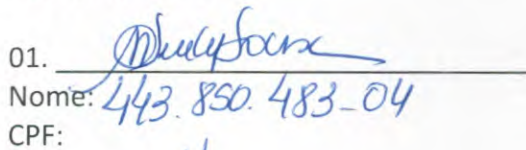 01.
Nome: 443.850.483-04
CPF: